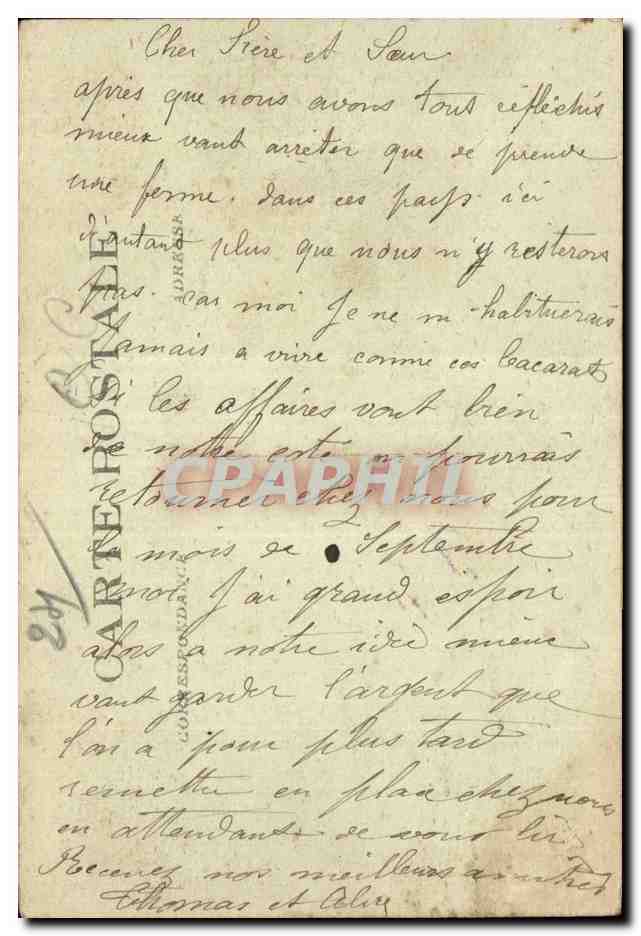 Cher Frère et Sœur
après que nous avons tout réfléchis
mieux vaut arrèter que de prendre
une ferme. dans ces pays ici
d'autant plus que nous n'y resterons
pas. car moi Je ne m'habituerais
Jamais a vivre comme ces
Si les affaires vont bien
de notre coté on pourrais
retourner chez nous pour
le mois de Septembre
moi J'ai grand espoir
alors a notre idée mieux
vaut garder l'argent que
l'on a pour plus tard
remettre en place chez nous
en attendant de vous lire
Recevez nos meilleurs amitiés
Thomas et
CARTE POSTALE
CORRESPONDANCE
ADRESSE
CPAPHIL